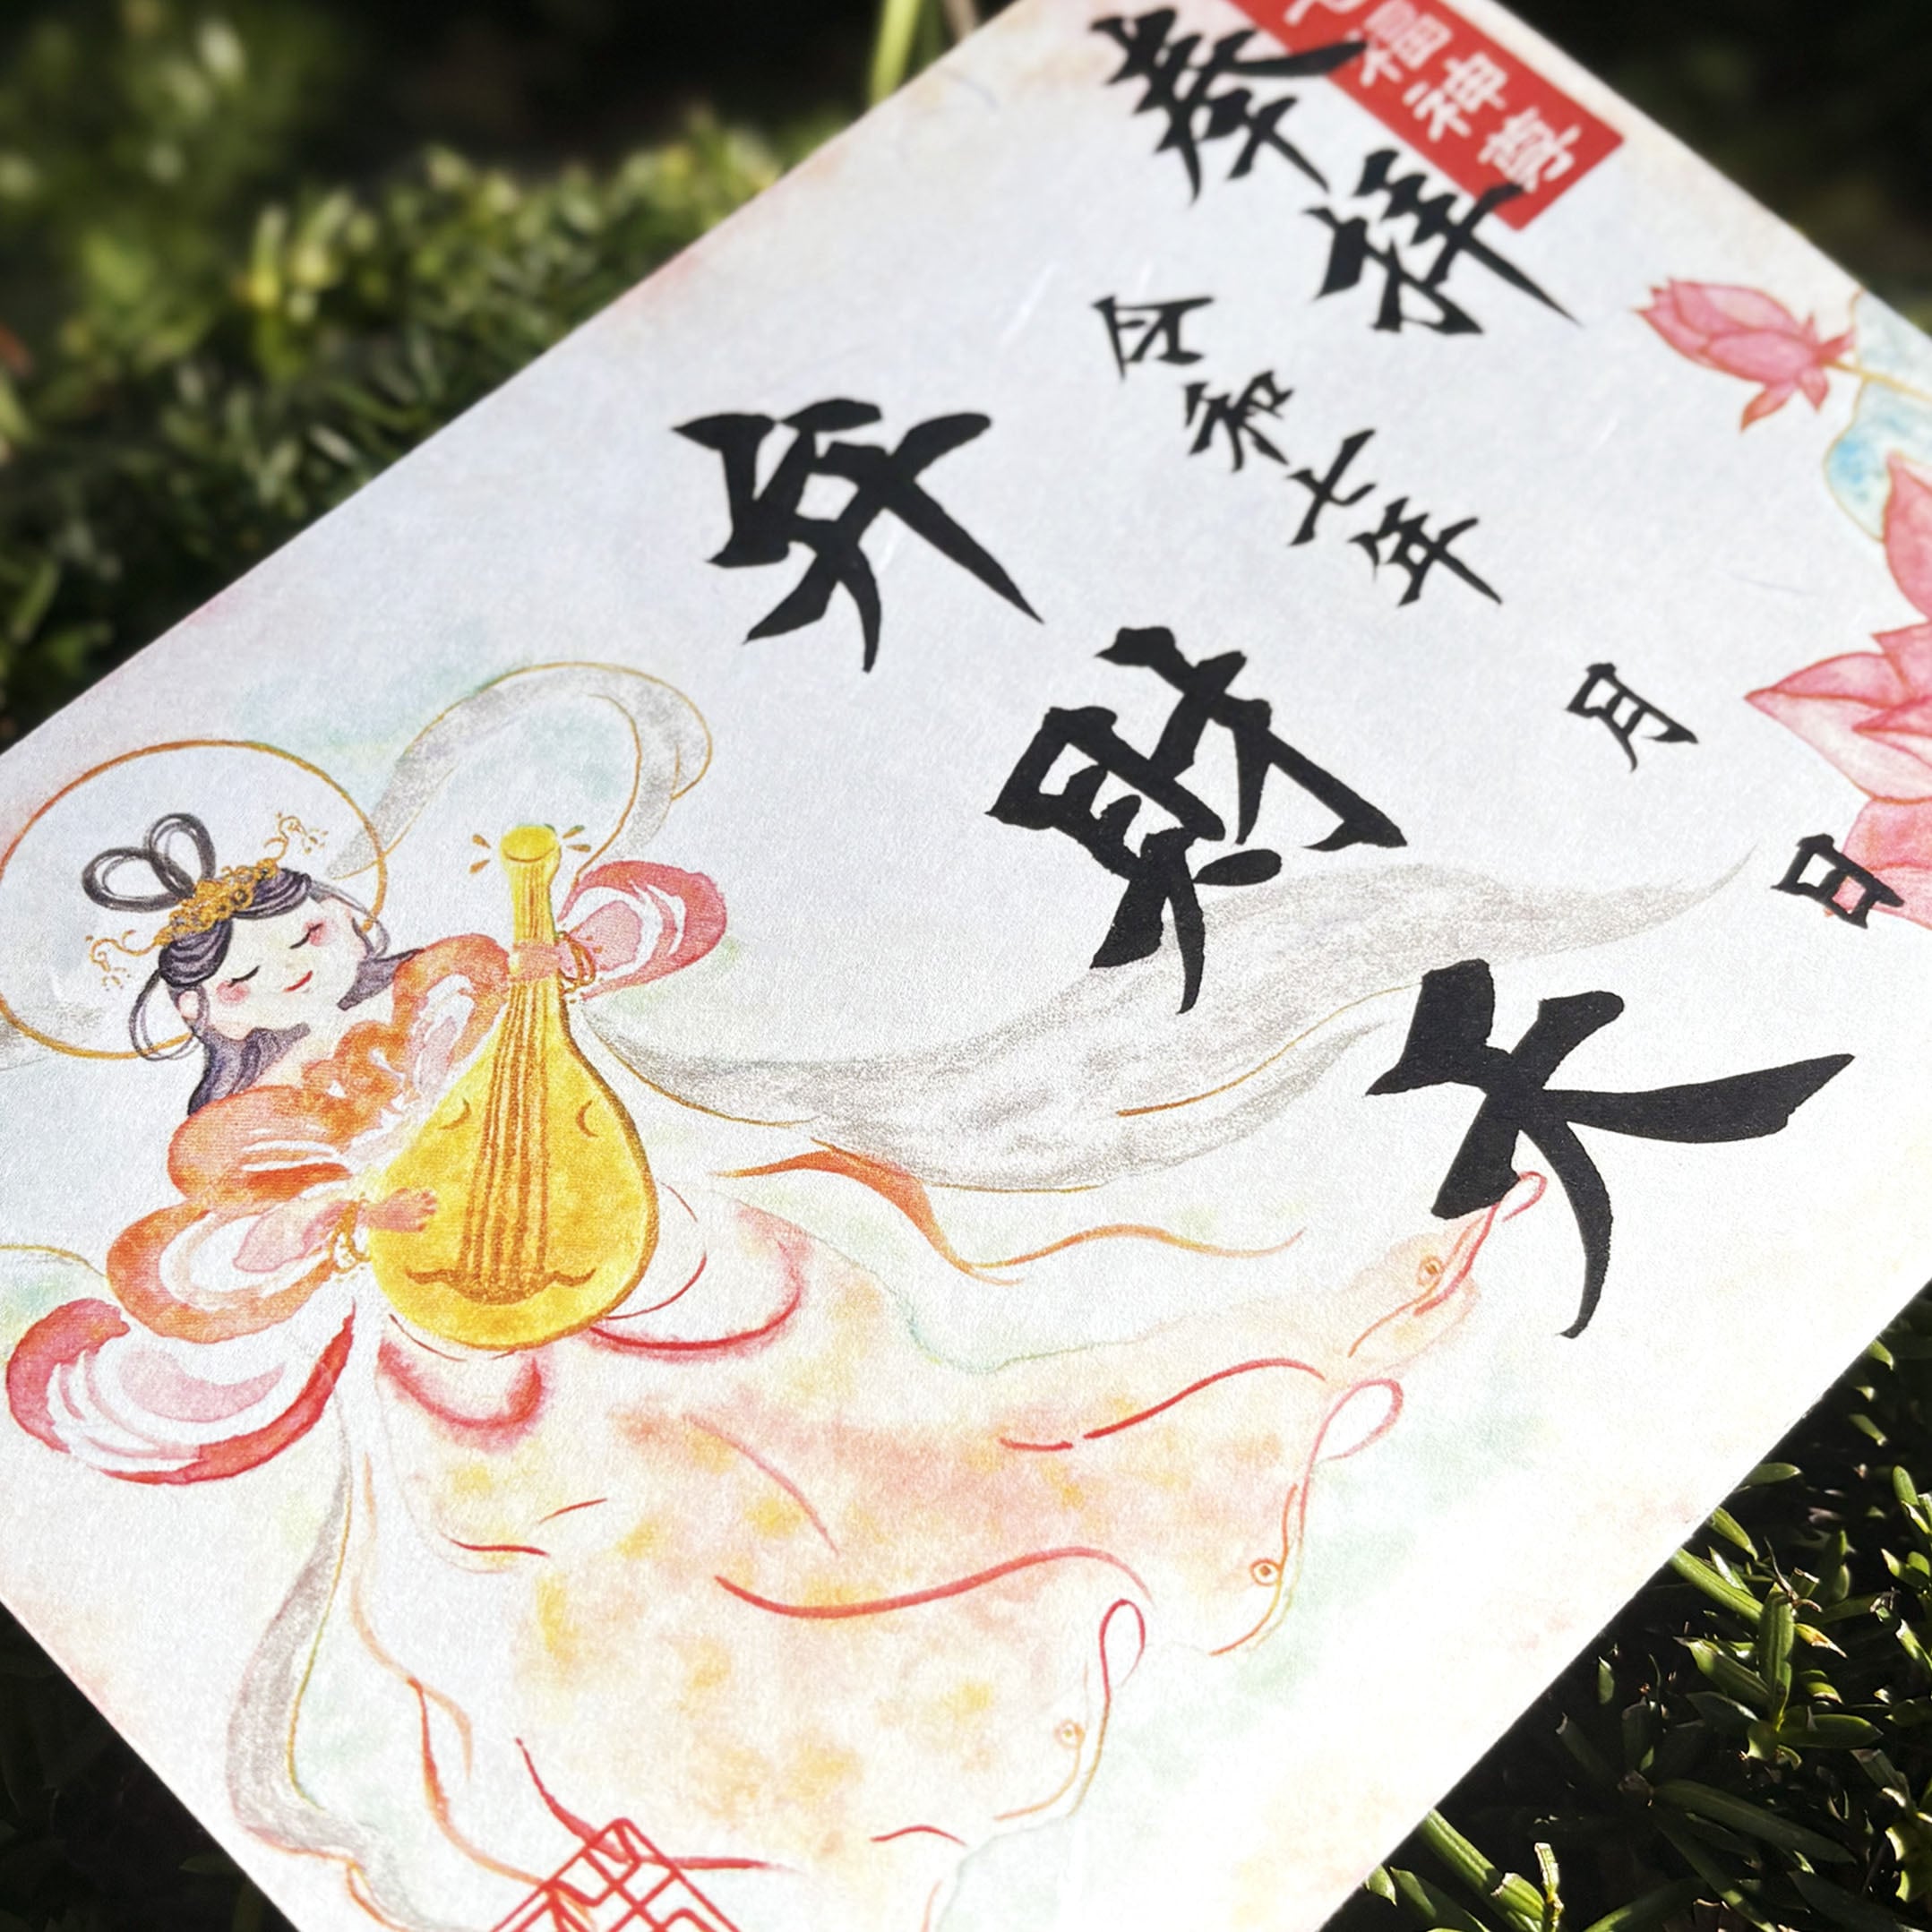 福神尊
奉拝
令和七年 月 日
弁財天